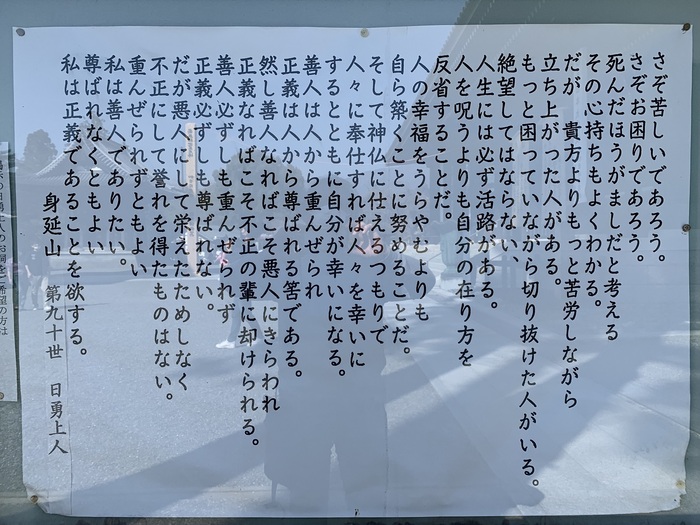 さぞ苦しいであろう。
さぞお困りであろう。
死んだほうがましだと考える
その心持ちもよくわかる。
だが　貴方よりもっと苦労しながら
立ち上がった人がある。
もっと困っていながら切り抜けた人がいる。
絶望してはならない、
人生には必ず活路がある。
人を呪うよりも自分の在り方を
反省することだ。
人の幸福をうらやむよりも
自ら築くことに努めることだ。
そして神仏に仕えるつもりで
人々に奉仕すれば人々を幸いに
するとともに自分が幸いになる。
善人は人から重んぜられ
正義は人から尊ばれる筈である。
然し善人なればこそ悪人にきらわれ
正義なればこそ不正の輩に却けられる。
善人必ずしも重んぜられず
正義必ずしも尊ばれない。
だが悪人にして栄えたためしなく
不正にして誉れを得たものはない。
重んぜられずともよい
私は善人でありたい。
尊ばれなくともよい
私は正義であることを欲する。
身延山　第九十世　日勇上人